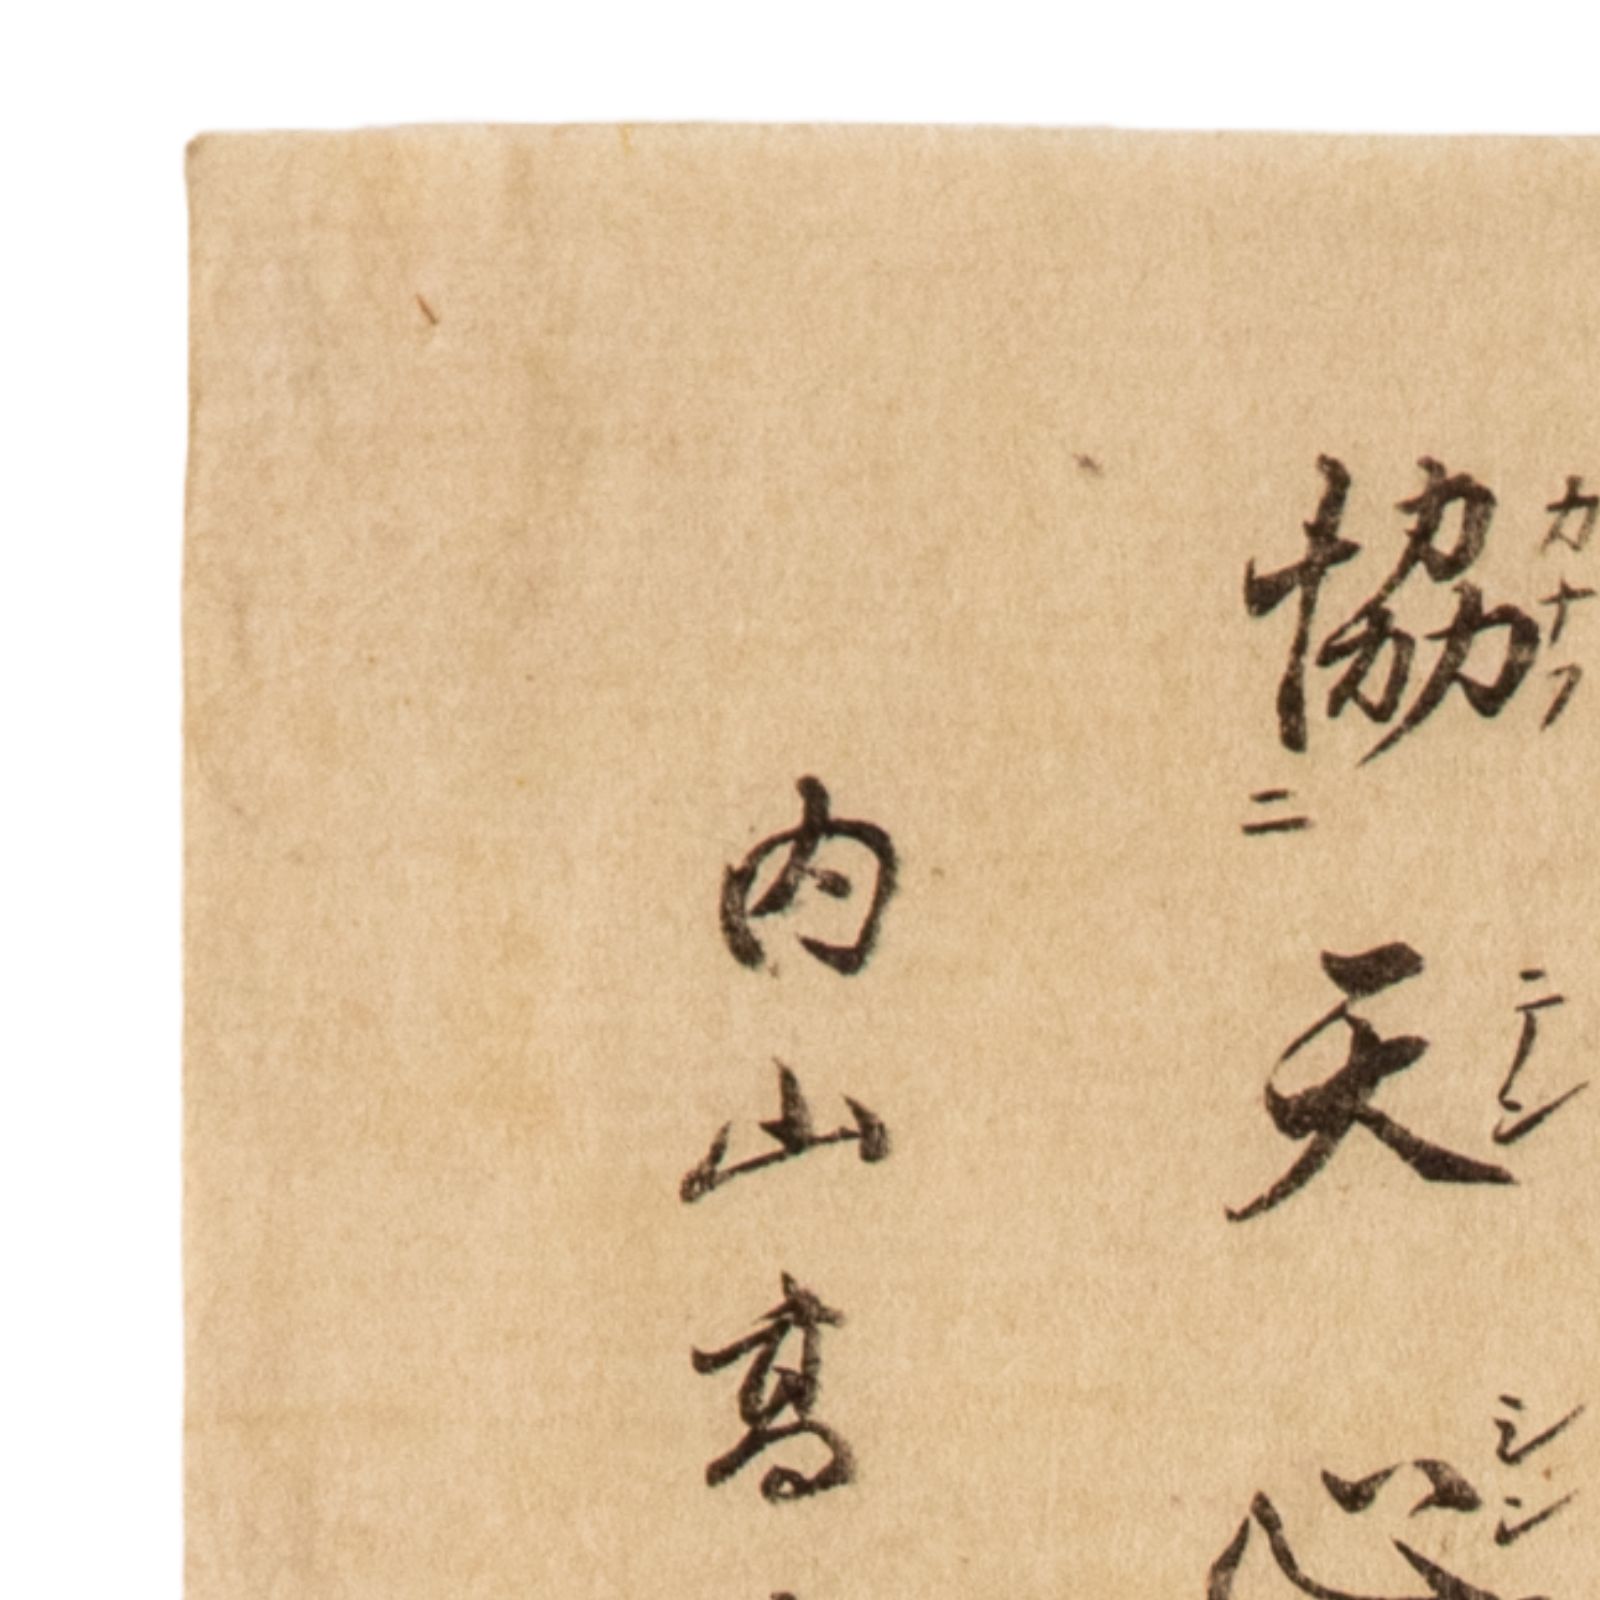 カナフ テン シン
協二天心
内山高